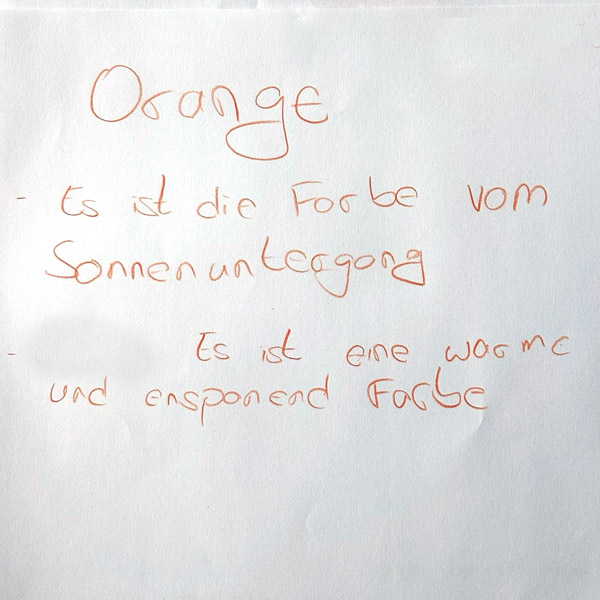 Orange
- Es ist die Farbe vom
Sonnenuntergang
- Es ist eine warme
und ensponend Farbe